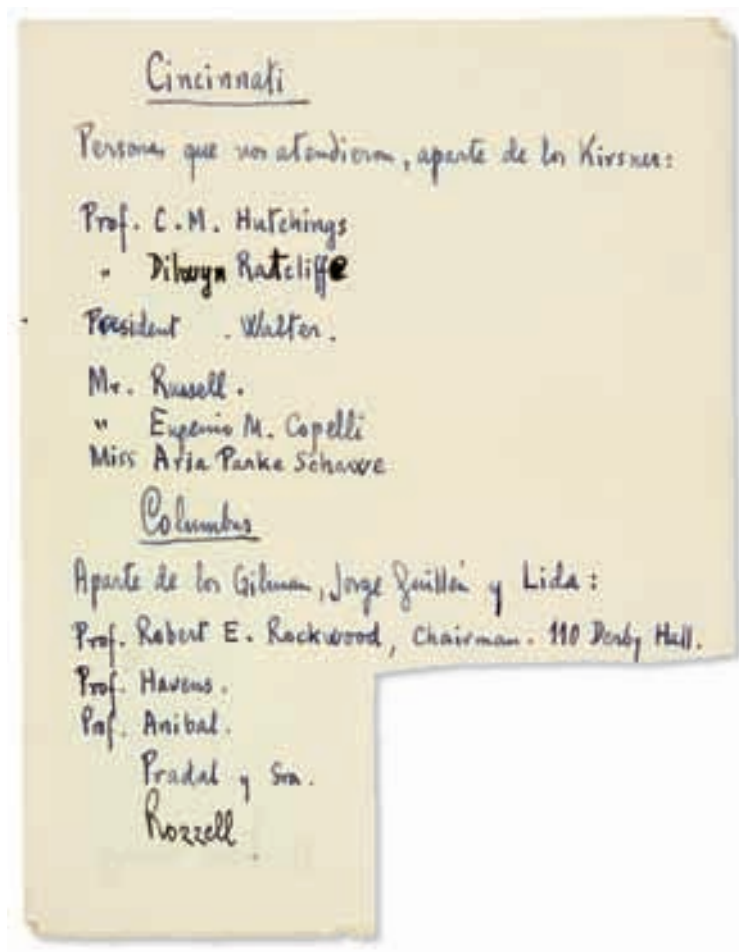 Cincinnati
Personas que nos atendieron, aparte de los Kirsner:
Prof. C.M. Hutchings
" Dilwyn Ratcliffe
President . Walter.
Mr. Russell.
" Eugenio M. Copelli
Miss Parke Schawe
Columbus
Aparte de los Gilman, Jorge Guillén y Lida:
Prof. Robert E. Rockwood, Chairman. 110 Derby Hall.
Prof. Havens.
Prof. Anibal.
Pradal y Sra.
Rozzell